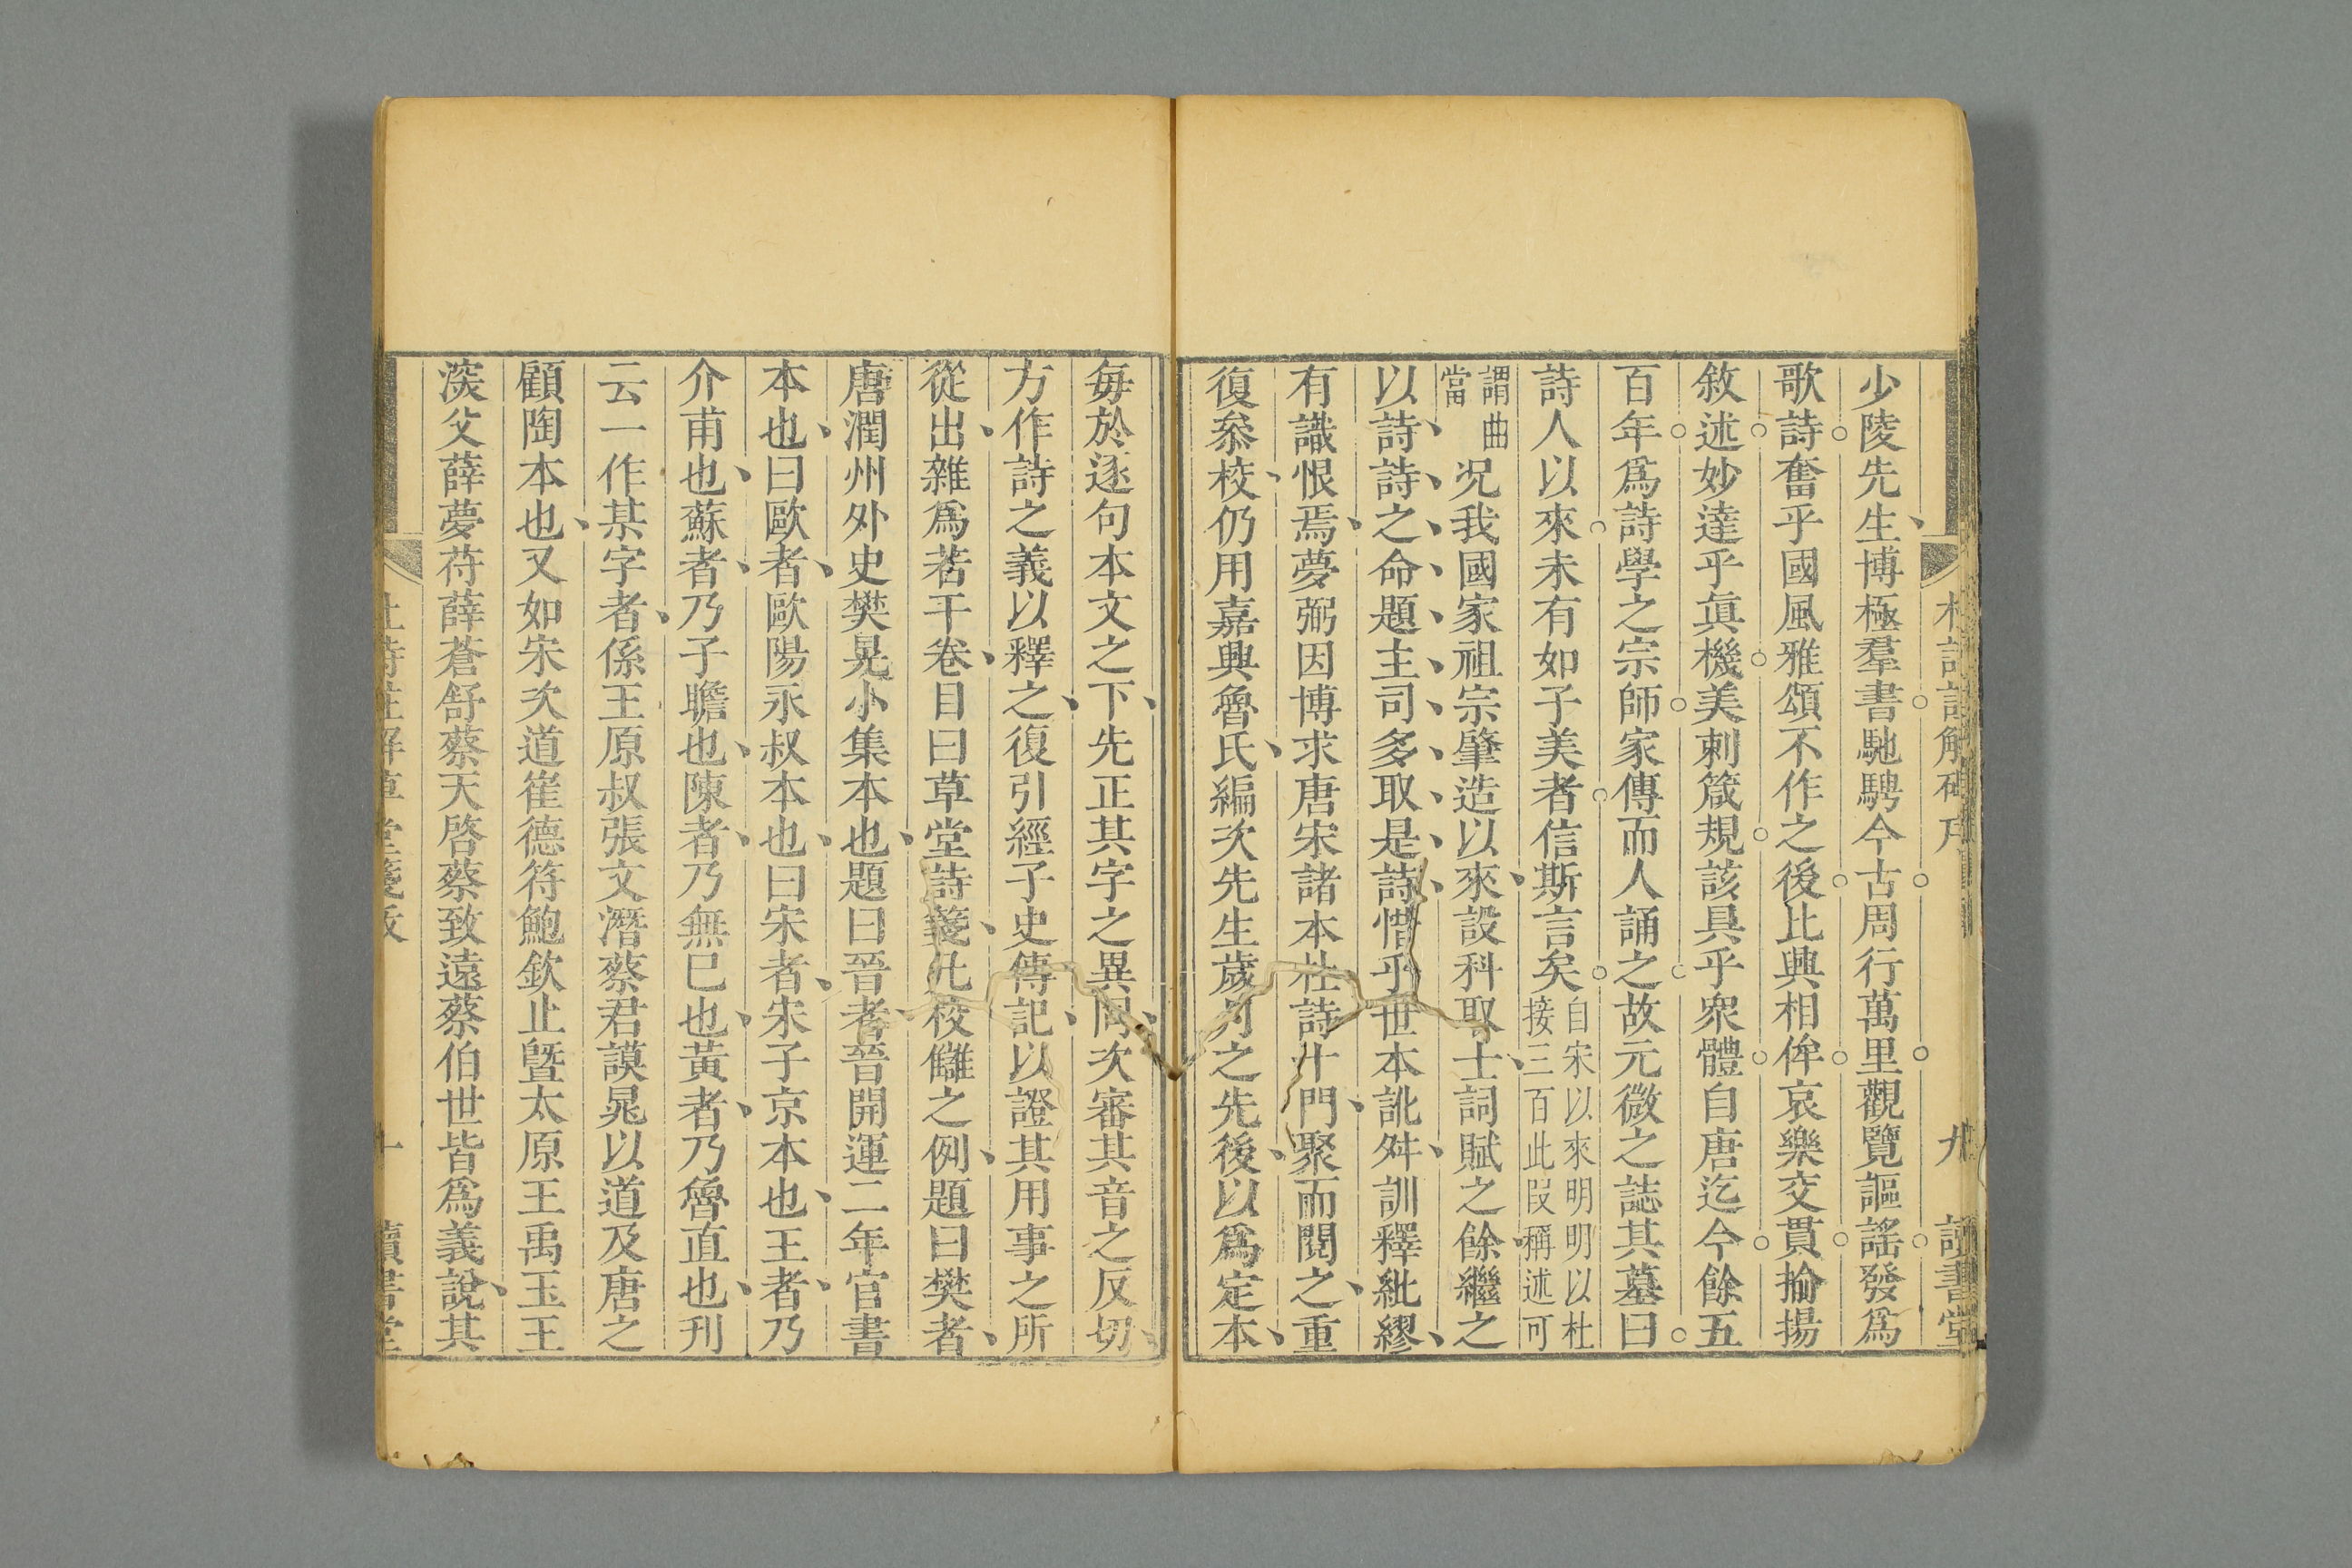 少陵先生博極羣書馳騁今古周行萬里觀覽謳謠發爲
歌詩奮乎國風雅頌不作之後比興相侔哀樂交貫揄揚
敘述妙達乎眞機美刺箴規該具乎衆體自唐迄今餘五
百年爲詩學之宗師家傳而人誦之故元微之誌其墓曰
詩人以來未有如子美者信斯言矣自宋以來明明以杜接三百此段稱述可
謂曲當况我國家祖宗肇造以來設科取士詞賦之餘繼之
以詩詩之命題主司多取是詩惜乎世本訛舛訓釋紕繆
有識恨焉夢弼因博求唐宋諸本杜詩十門聚而閱之重
復叅校仍用嘉興魯氏編次先生歲月之先後以爲定本
每於逐句本文之下先正其字之異同次審其音之反切
方作詩之義以釋之復引經子史傳記以證其用事之所
從出雜爲若干卷目曰草堂詩箋凡校讎之例題曰樊者
唐潤州外史樊晃小集本也題曰晉者晉開運二年官書
本也曰歐者歐陽永叔本也曰宋者宋子京本也王者乃
介甫也蘇者乃子瞻也陳者乃無已也黃者乃魯直也刋
云一作某字者係王原叔張文潛蔡君謨晁以道及唐之
顧陶本也又如宋次道崔德符鮑欽止曁太原王禹玉王
深父薛夢符薛蒼舒蔡天啓蔡致遠蔡伯世皆爲義說其